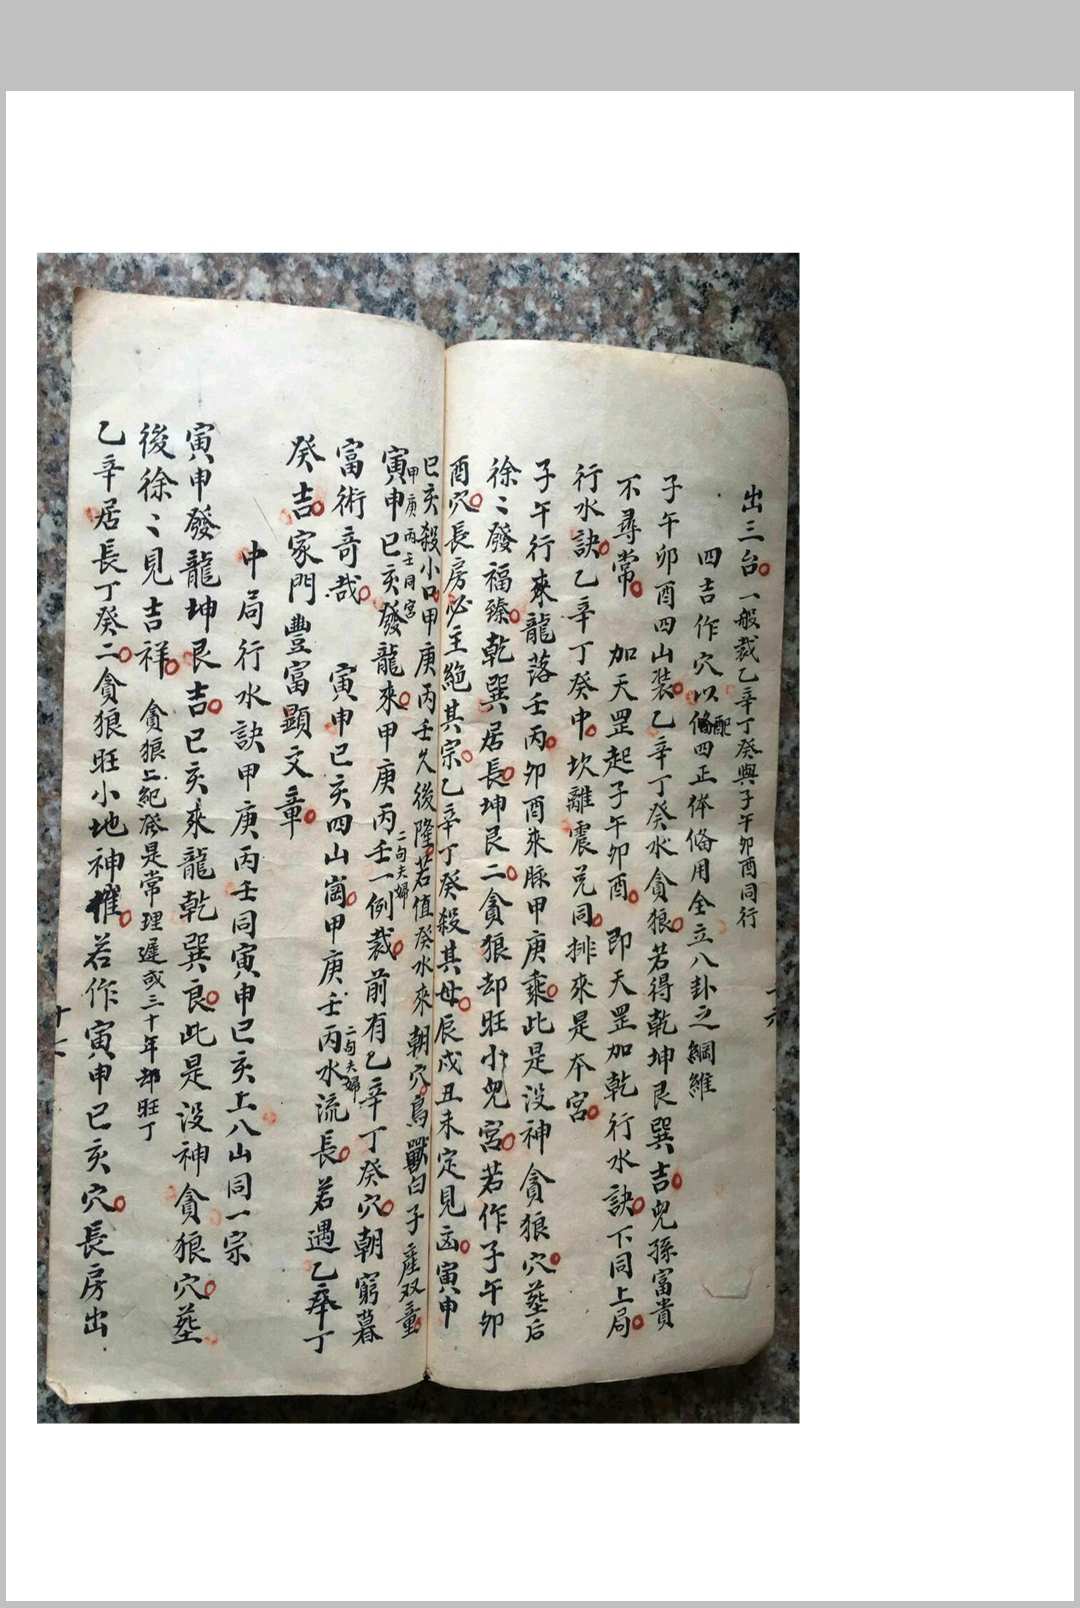 出三台一般裁乙辛丁癸與子午卯酉同行
四吉作穴以俻配四正体俻用全立八卦之綱維
子午卯酉四山裝乙辛丁癸水貪狼若得乾坤艮巽吉兒孫富貴
不尋常 加天罡起子午卯酉 即天罡加乾行水訣下同上局
行水訣乙辛丁癸中坎離震兌同排來是本宮
子午行來龍落壬丙卯酉來脉甲庚乘此是没神貪狼穴塟后
徐〻發福臻乾巽居長坤艮二貪狼却旺小兒宮若作子午卯
酉穴長房必主絕其宗乙辛丁癸殺其母辰戌丑未定見凶寅申
巳亥殺小口甲庚丙壬久後隆若值癸水來朝穴鳥獸白子産双童
甲庚丙壬同宮
寅申巳亥發龍來甲庚丙壬一例裁前有乙辛丁癸穴朝窮暮
二句夫婦
富術奇哉 寅申巳亥四山崗甲庚壬丙水流長若遇乙辛丁
二句夫婦
癸吉家門豐富顯文章
中局行水訣甲庚丙壬同寅申巳亥上八山同一宗
寅申發龍坤艮吉巳亥來龍乾巽良此是没神貪狼穴塟
後徐〻見吉祥 貪狼上紀癸是常理遲或三十年却旺丁
乙辛居長丁癸二貪狼旺小地神摧若作寅申巳亥穴長房出
十六
十七